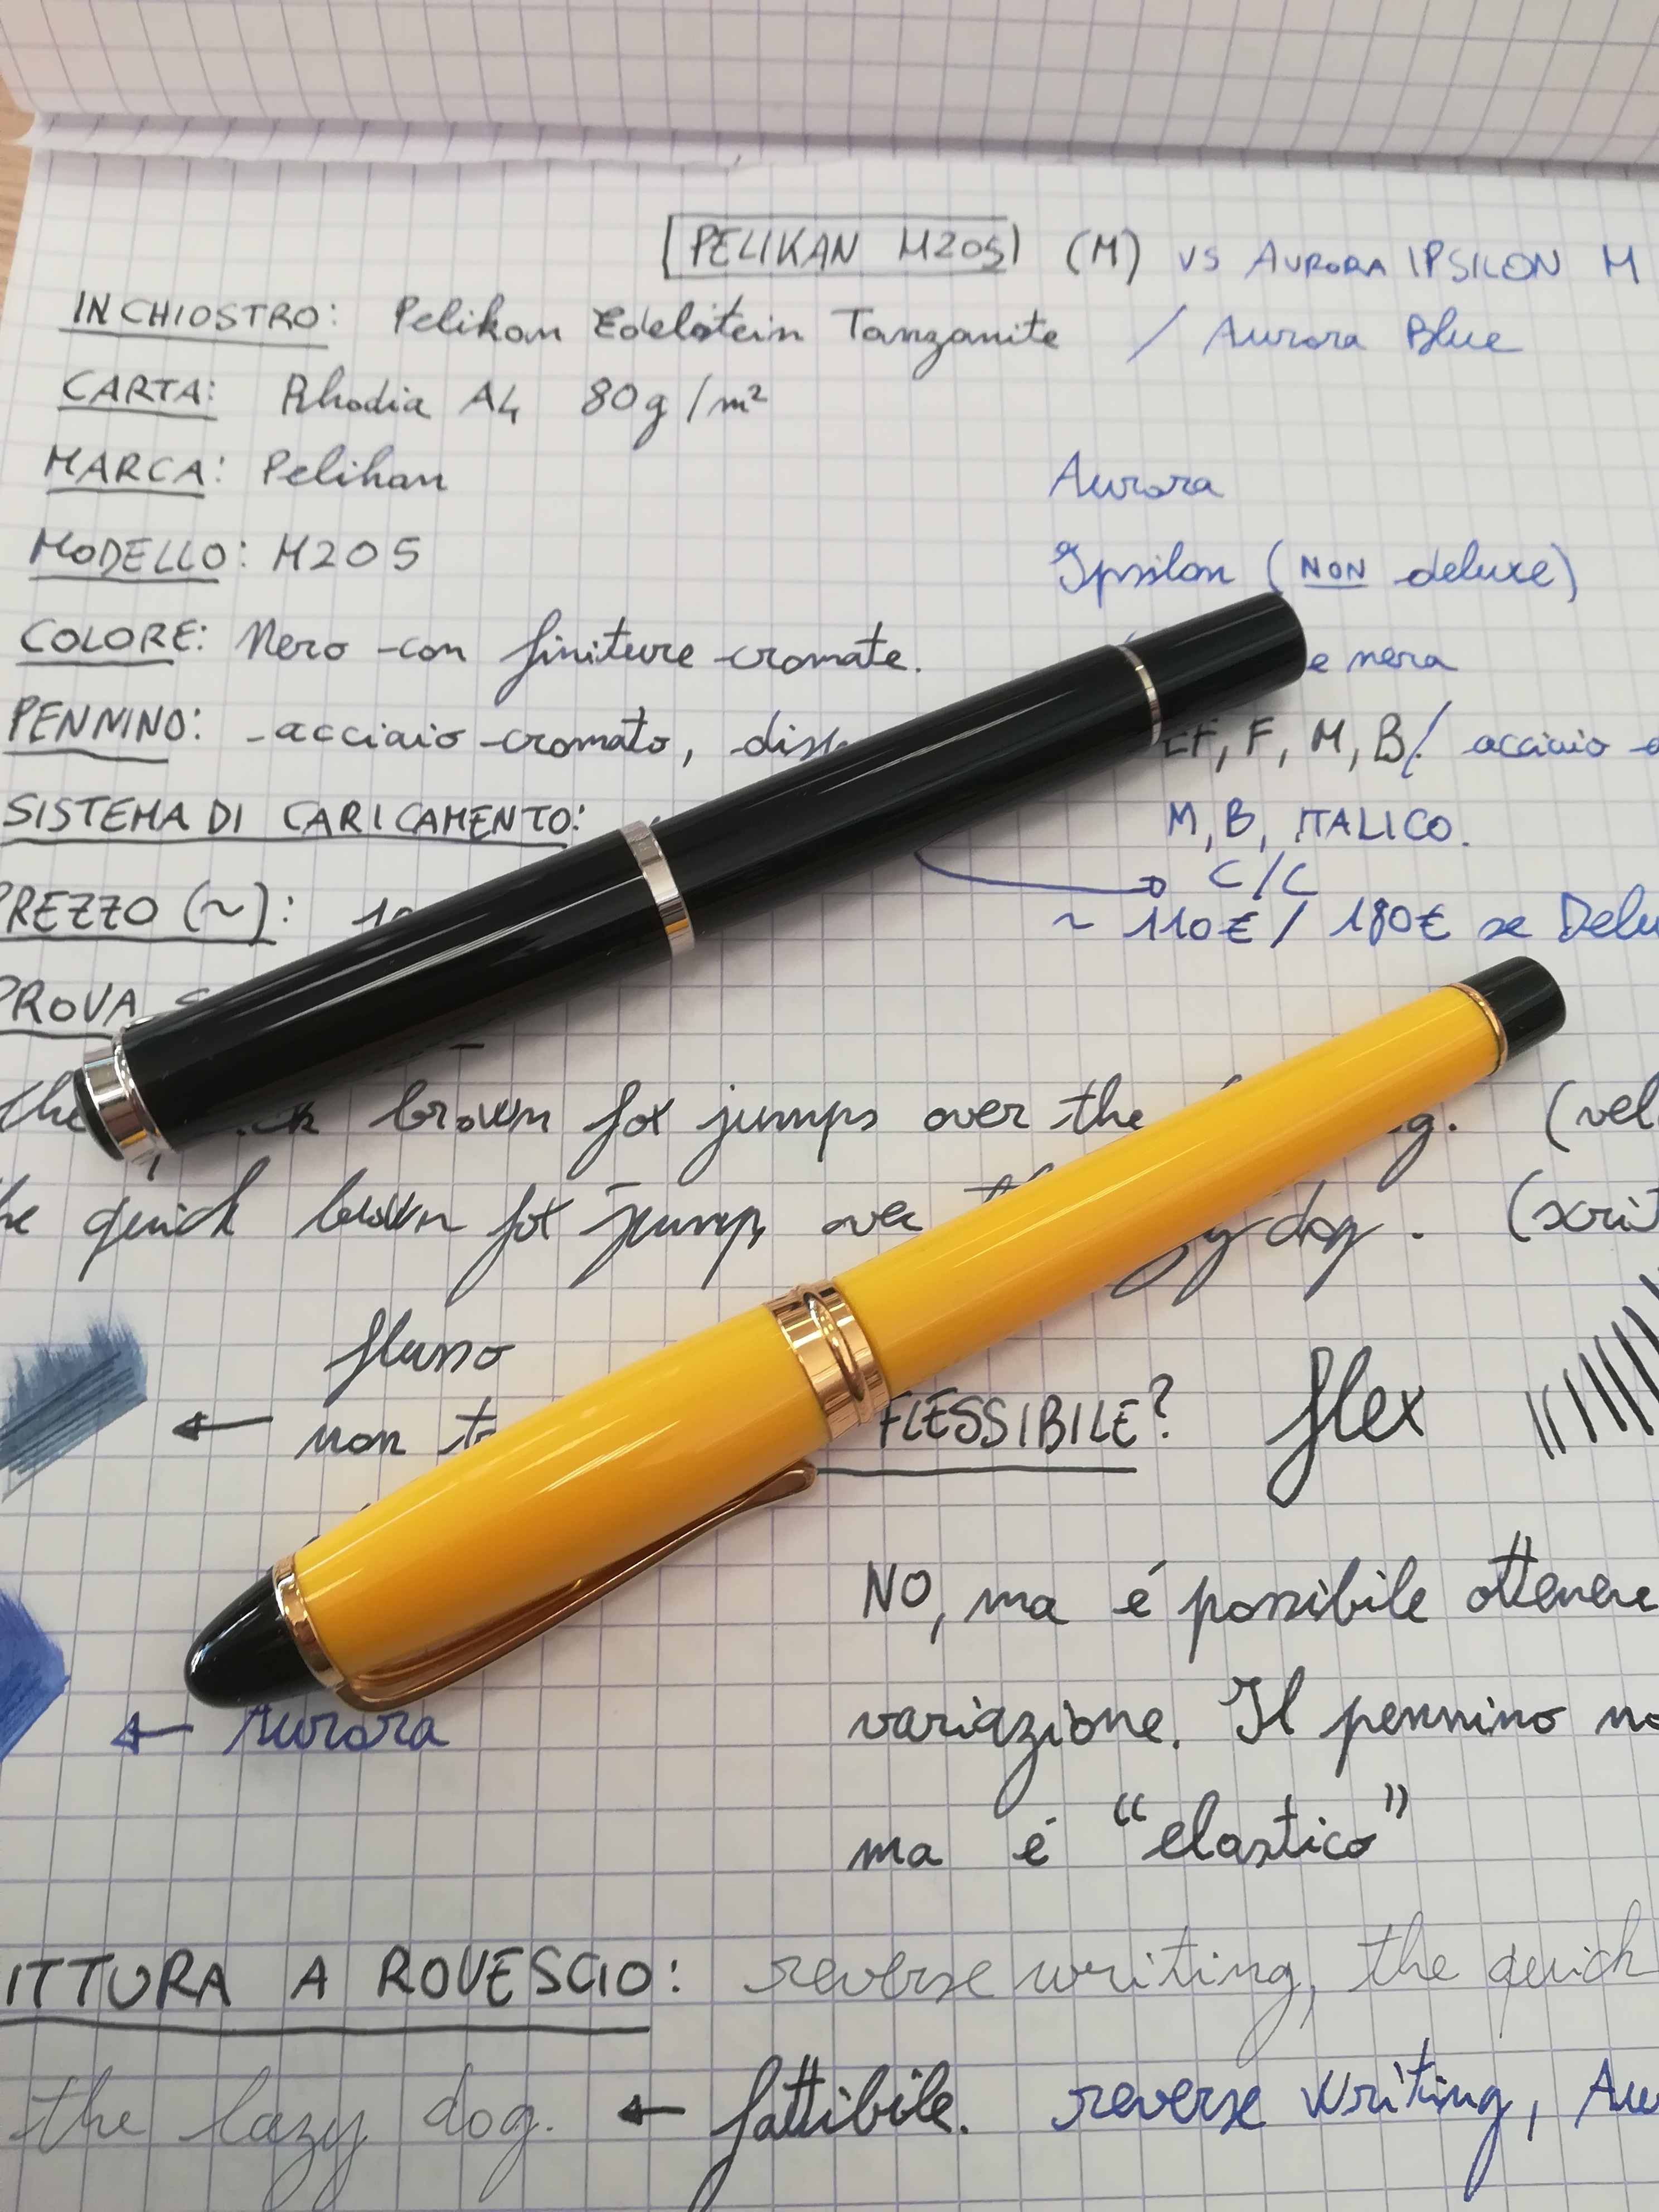 PELIKAN M205 (M) vs AURORA IPSILON M
INCHIOSTRO: Pelikan Edelstein Tanzanite / Aurora Blue
CARTA: Rhodia A4 80g/m²
MARCA: Pelikan Aurora
MODELLO: M205 Ipsilon (NON deluxe)
COLORE: Nero con finiture cromate. e nera
PENNINO: acciaio cromato, F, M, B/ acciaio
SISTEMA DI CARICAMENTO: M, B, ITALICO.
C/C
PREZZO (~): ~ 110€ / 180€ se
PROVA
the brown fox jumps over the
the quick brown fox jumps over dog.
flusso
non FLESSIBILE? flex
← NO, ma é possibile ottenere
← Aurora variazione. Il pennino
ma é “elastico”
A ROVESCIO: reverse writing, the quick
the lazy dog. ← fattibile. reverse writing,